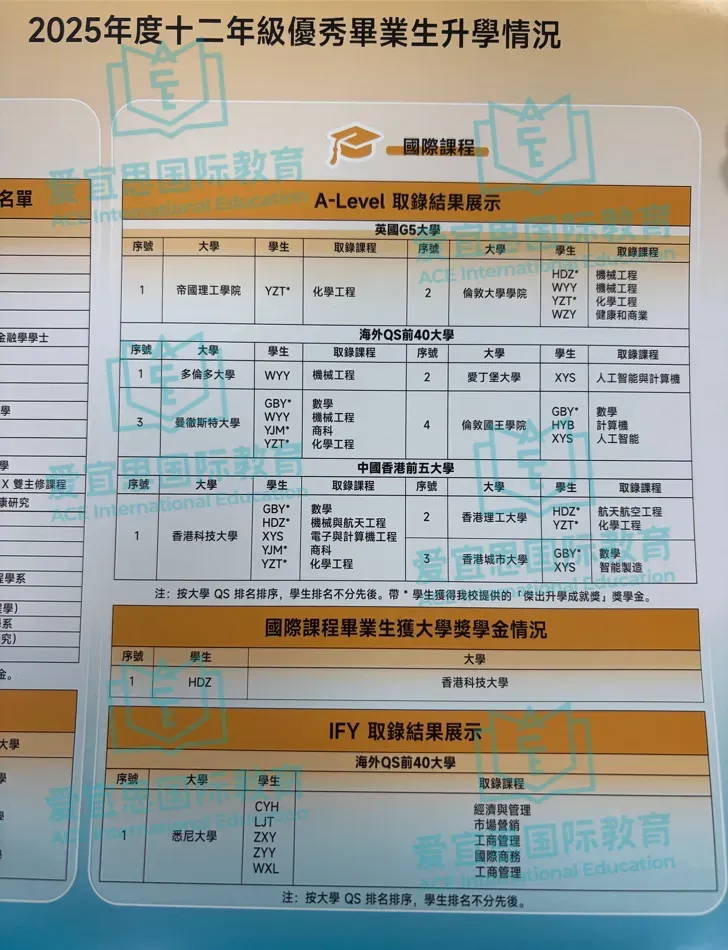 2025年度十二年級優秀畢業生升學情況
名單
金融學學士
學
學
X 雙主修課程
康研究
程學系
學)
系
究)
金。
大學
國際課程
A-Level 取錄結果展示
英國G5大學
序號 大學 學生 取錄課程 序號 大學 學生 取錄課程
1 帝國理工學院 YZT* 化學工程 2 倫敦大學學院 HDZ* 機械工程
WYY 機械工程
YZT* 化學工程
WZY 健康和商業
海外QS前40大學
序號 大學 學生 取錄課程 序號 大學 學生 取錄課程
1 多倫多大學 WYY 機械工程 2 愛丁堡大學 XYS 人工智能與計算機
3 曼徹斯特大學 GBY* 數學 4 倫敦國王學院 GBY* 數學
WYY 機械工程 HYB 計算機
YJM* 商科 XYS 人工智能
YZT* 化學工程
中國香港前五大學
序號 大學 學生 取錄課程 序號 大學 學生 取錄課程
1 香港科技大學 GBY* 數學 2 香港理工大學 HDZ* 航天航空工程
HDZ* 機械與航天工程 YZT* 化學工程
XYS 電子與計算機工程
YJM* 商科 3 香港城市大學 GBY* 數學
YZT* 化學工程 XYS 智能製造
注：按大學 QS 排名排序，學生排名不分先後。帶 * 學生獲得我校提供的「傑出升學成就獎」獎學金。
國際課程畢業生獲大學獎學金情況
序號 學生 大學
1 HDZ 香港科技大學
IFY 取錄結果展示
海外QS前40大學
序號 大學 學生 取錄課程
1 悉尼大學 CYH 經濟與管理
LJT 市場營銷
ZXY 工商管理
ZYY 國際商務
WXL 工商管理
注：按大學 QS 排名排序，學生排名不分先後。
ACE
爱宜思国际教育
ACE International Education
ACE
爱宜思国际教育
ACE International Education
ACE
爱宜思国际教育
ACE International Education
ACE
爱宜思国际教育
ACE International Education
ACE
爱宜思国际教育
ACE International Education
ACE
爱宜思国际教育
ACE International Education